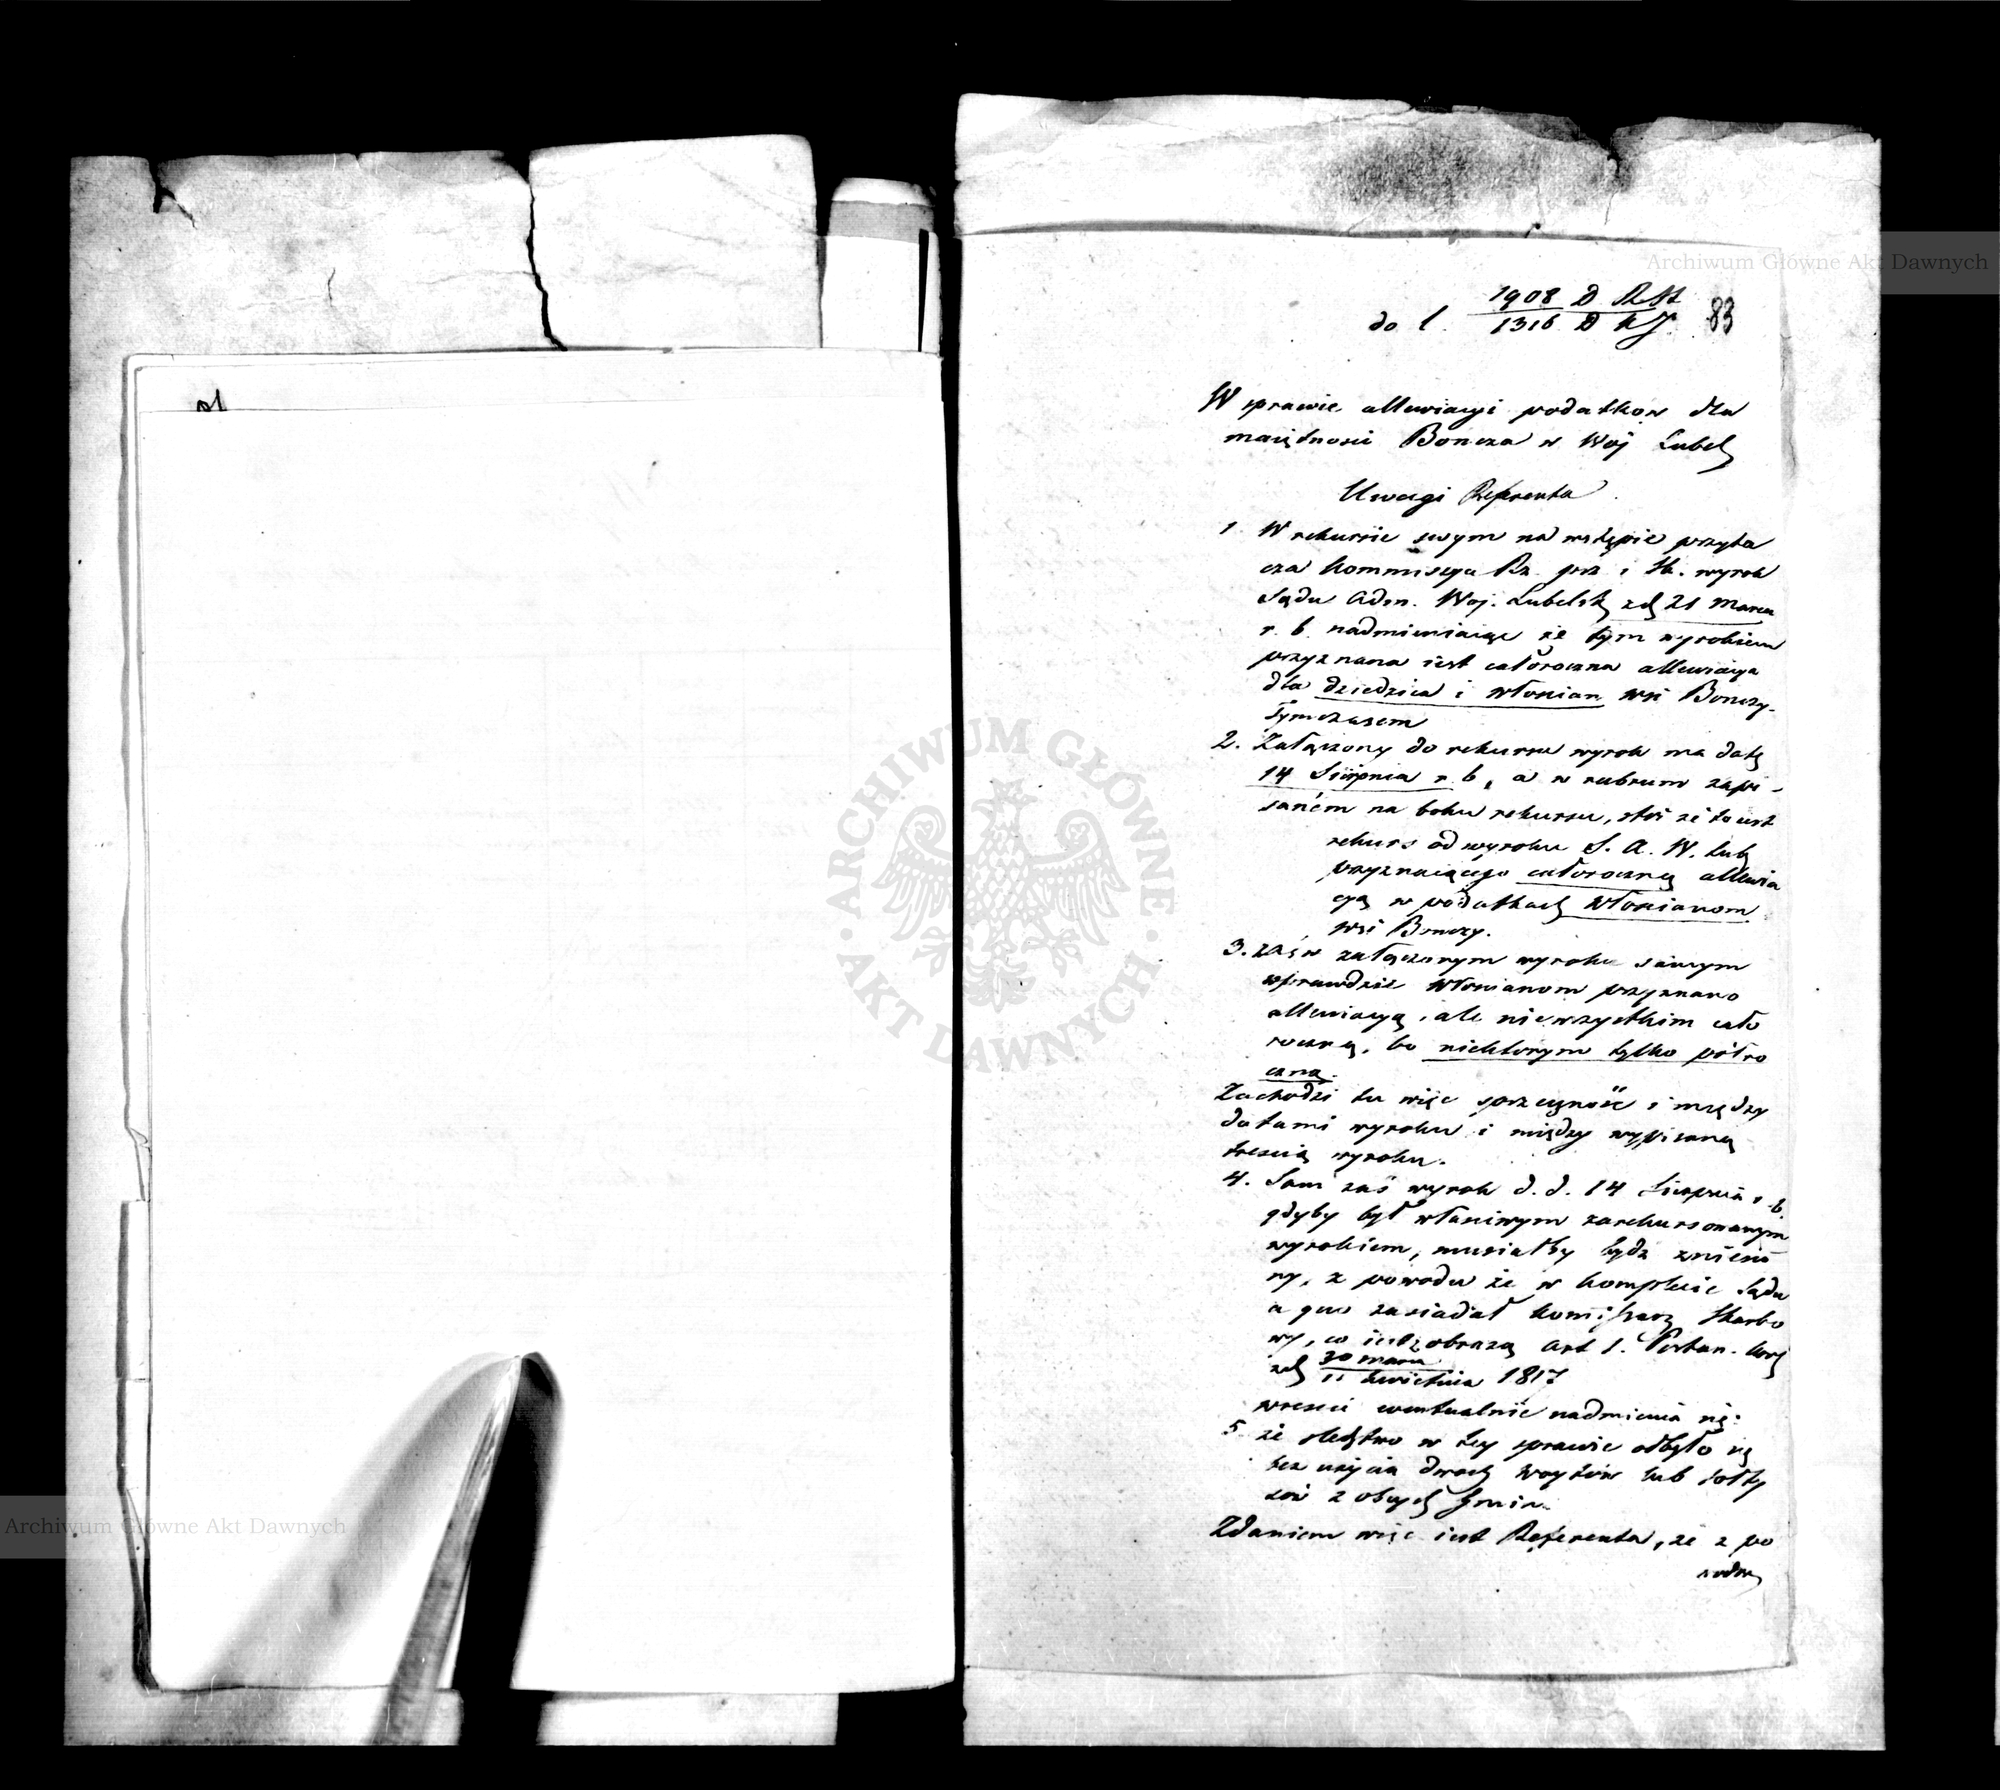 Archiwum Główne Akt Dawnych
1908 D R St
do l. 1316 D K J. 83
W sprawie allewiacyi podatkow dla
maiętnosci Boncza w Woj Lubel
Uwagi Referenta
1. W rekursie swym na wstępie przyta
cza Kommissya Rz. prz. i Sk. wyrok
Sądu Adm. Woj. Lubelsk zd 21 Marca
r. b. nadmieniaiąc że tym wyrokiem
przyznana iest całoroczna allewiacya
dla dziedzica i włoscian wsi Bonczy.
Tymczasem
2. Załączony do rekursu wyrok ma datę
14 Sierpnia r. b, a w rubrum zapi-
saném na boku rekursu, stoi że to iest
rekurs od wyroku S. A. W. Lub
przyznaiącego całoroczną allewia
cyą w podatkach włoscianom
wsi Bonczy.
3. zaś w załączonym wyroku samym
wprawdzie włoscianom przyznano
allewiacyą, ale nie wszystkim cało
roczną, bo niektorym tylko półro
czną.
Zachodzi tu więc sprzeczność i między
datami wyroku i między wypisaną
trescią wyroku.
4. Sam zaś wyrok d. d. 14 Sierpnia r. b.
gdyby był własciwym zarekursowanym
wyrokiem, musiałby bydz zniesio
ny, z powodu że w komplecie Sądu
a quo zasiadał Kommissarz Skarbo
wy, co iest z obrazą art 1. Postan. Król
zd 30 marca
11 kwietnia 1817
wrescie ewentualnie nadmienia się:
5. że sledztwo w tey sprawie odbyło się
bez użycia dwoch woytów lub sołty
sów z obcych Gmin.
Zdaniem więc iest Referenta, że z po
wodu
ARCHIWUM GŁÓWNE
AKT DAWNYCH
Archiwum Główne Akt Dawnych